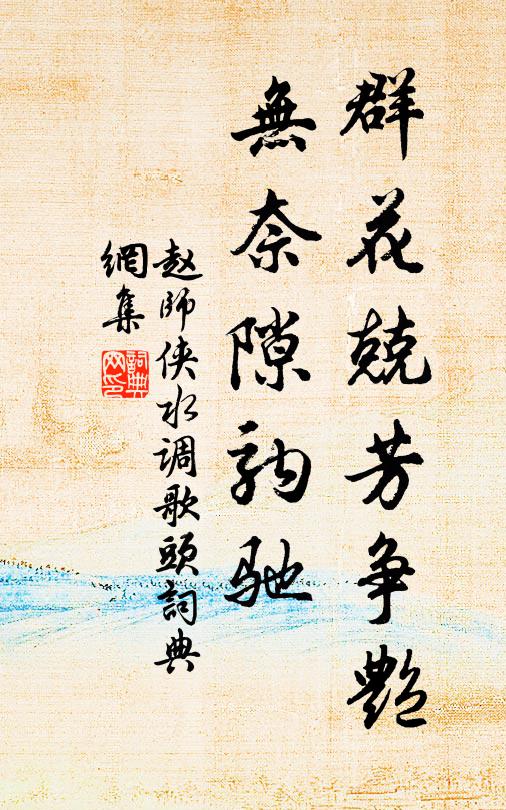 群花兢芳争艷
無奈隙駒馳
赵師俠水调歌頭詞典
網集
詞典
网印